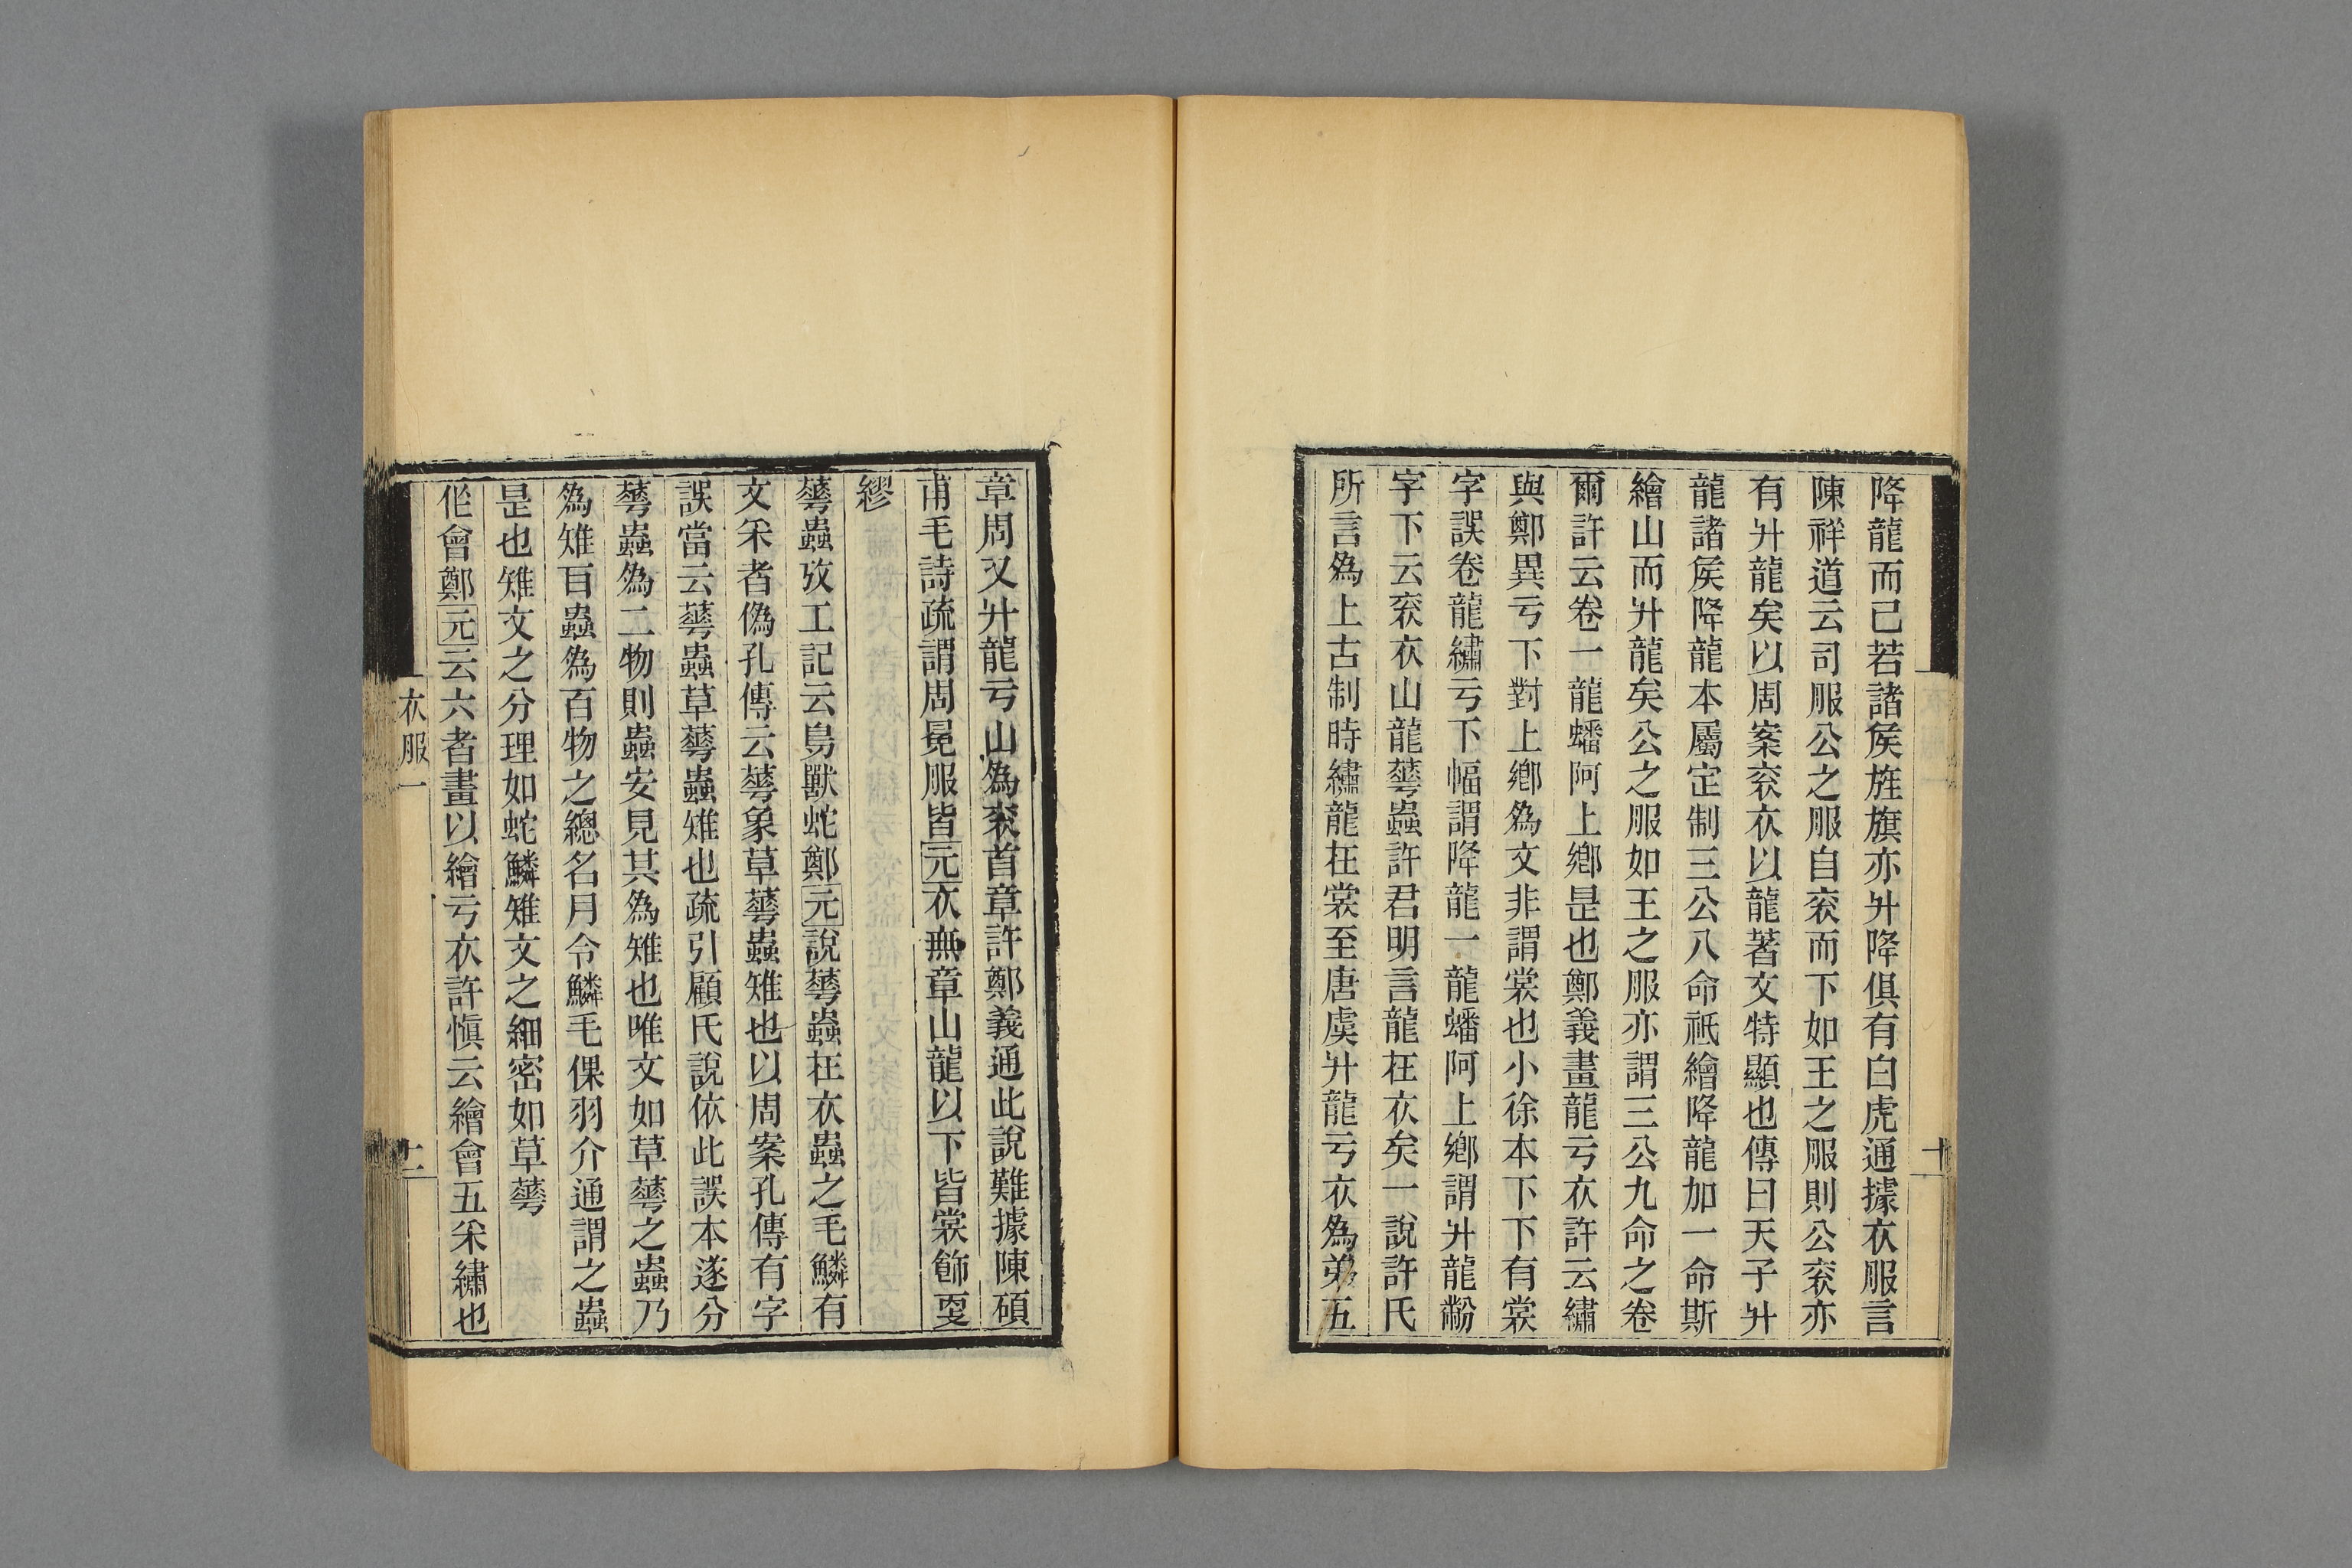 降龍而已若諸矦旌旗亦升降俱有白虎通據衣服言
陳祥道云司服公之服自衮而下如王之服則公衮亦
有升龍矣以周案衮衣以龍著文特顯也傳曰天子升
龍諸矦降龍本屬定制三公八命祇繪降龍加一命斯
繪山而升龍矣公之服如王之服亦謂三公九命之卷
爾許云卷一龍蟠阿上鄉是也鄭義畫龍亏衣許云繡
與鄭異亏下對上鄉為文非謂裳也小徐本下下有裳
字誤卷龍繡亏下幅謂降龍一龍蟠阿上鄉謂升龍黺
字下云衮衣山龍蕐蟲許君明言龍在衣矣一說許氏
所言為上古制時繡龍在裳至唐虞升龍亏衣為弟五
十一
章周又升龍亏山為衮首章許鄭義通此說難據陳碩
甫毛詩疏謂周冕服皆元衣無章山龍以下皆裳飾耎
繆
蕐蟲攷工記云鳥獸蛇鄭元說蕐蟲在衣蟲之毛鱗有
文采者偽孔傳云蕐象草蕐蟲雉也以周案孔傳有字
誤當云蕐蟲草蕐蟲雉也疏引顧氏說依此誤本遂分
蕐蟲為二物則蟲安見其為雉也唯文如草蕐之蟲乃
為雉百蟲為百物之總名月令鱗毛倮羽介通謂之蟲
是也雉文之分理如蛇鱗雉文之細密如草蕐
作會鄭元云六者畫以繪亏衣許慎云繪會五采繡也
衣服一
十二